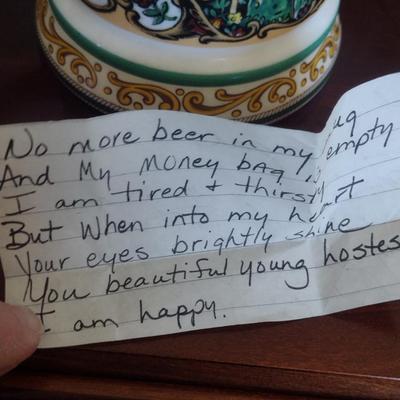 No more beer in my mug
And My money bag is empty
I am tired + thirsty
But When into my heart
Your eyes brightly shine
You beautiful young hostess
I am happy.